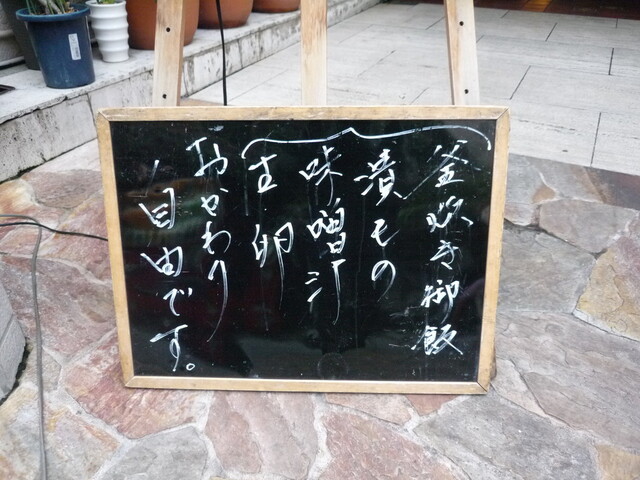 釜炊き御飯
漬もの
味噌汁
生卵
おかわり
自由です。